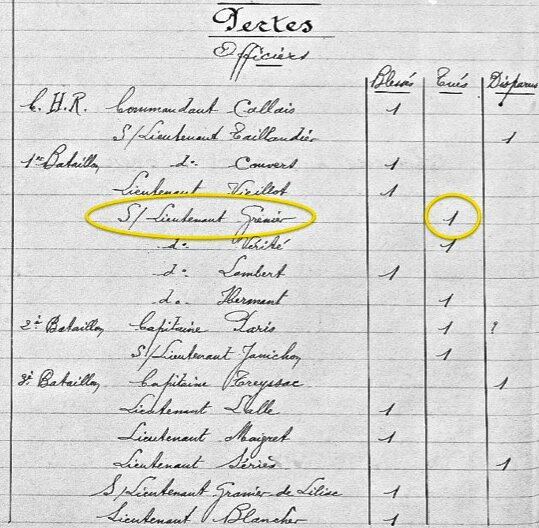 Pertes
Officiers
Blessés Tués Disparus
C.H.R. Commandant Callais 1
S/Lieutenant Taillandier 1
1er Bataillon do Couvert 1
Lieutenant Vieillot 1
S/Lieutenant Grenier 1
do Vérité 1
do Lambert 1
do Hermant 1
2è Bataillon Capitaine Paris 1 ?
S/Lieutenant Janichon 1
3è Bataillon Capitaine Treyssac 1
Lieutenant Lalle 1
Lieutenant Maigret 1
Lieutenant Sériès 1
S/Lieutenant Granier de Lilise 1
Lieutenant Blancher 1